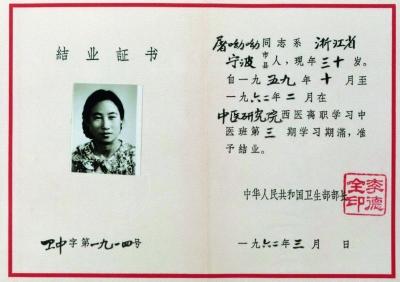 結业证书
卫中字第一九一四号
屠呦呦同志系 浙江省
宁波市县人，现年三十岁。
自一九五九年十月至
一九六二年二月在
中医研究院西医离职学习中
医班第三期学习期满，准
予結业。
中华人民共和国卫生部部长
李德
全印
一九六二年三月 日